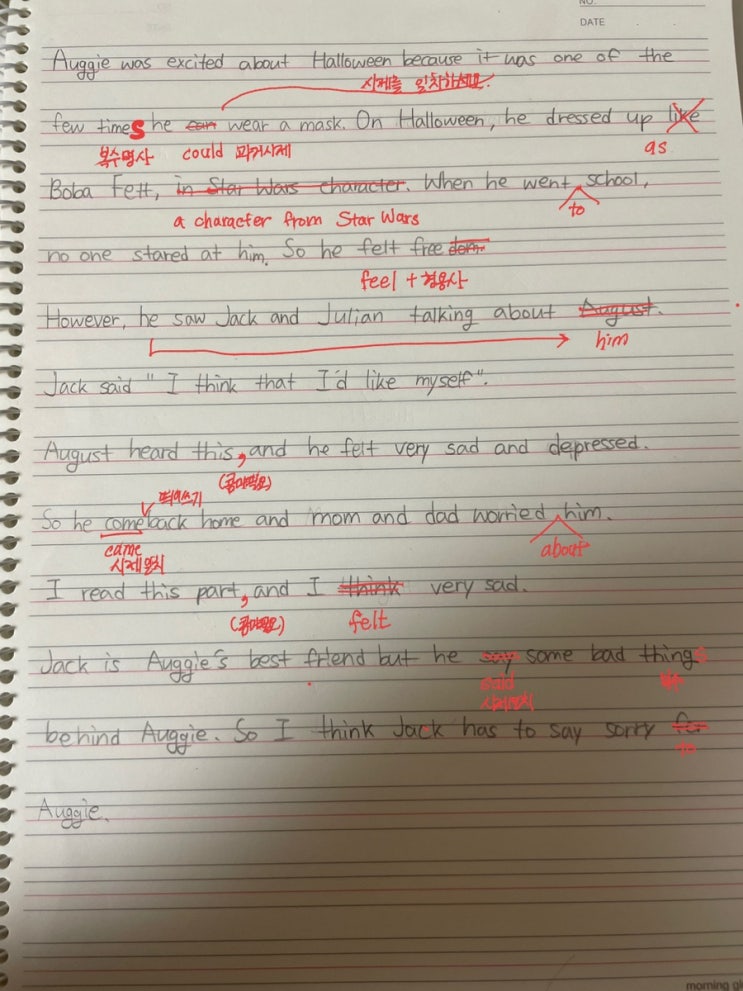 NO.
DATE
Auggie was excited about Halloween because it was one of the
시제를 일치하세요.
few times he can wear a mask. On Halloween, he dressed up like
복수명사 could 과거시제 as
Boba Fett, in Star Wars character. When he went school,
to
a character from Star Wars
no one stared at him. So he felt freedom
feel + 형용사
However, he saw Jack and Julian talking about August.
him
Jack said " I think that I'd like myself".
August heard this, and he felt very sad and depressed.
(콤마필요)
띄어쓰기
So he comeback home and mom and dad worried him.
came about
시제일치
I read this part, and I think very sad.
(콤마필요) felt
Jack is Auggie's best friend but he say some bad things
said 복수
시제일치
behind Auggie. So I think Jack has to say sorry for
to
Auggie.
morning gl